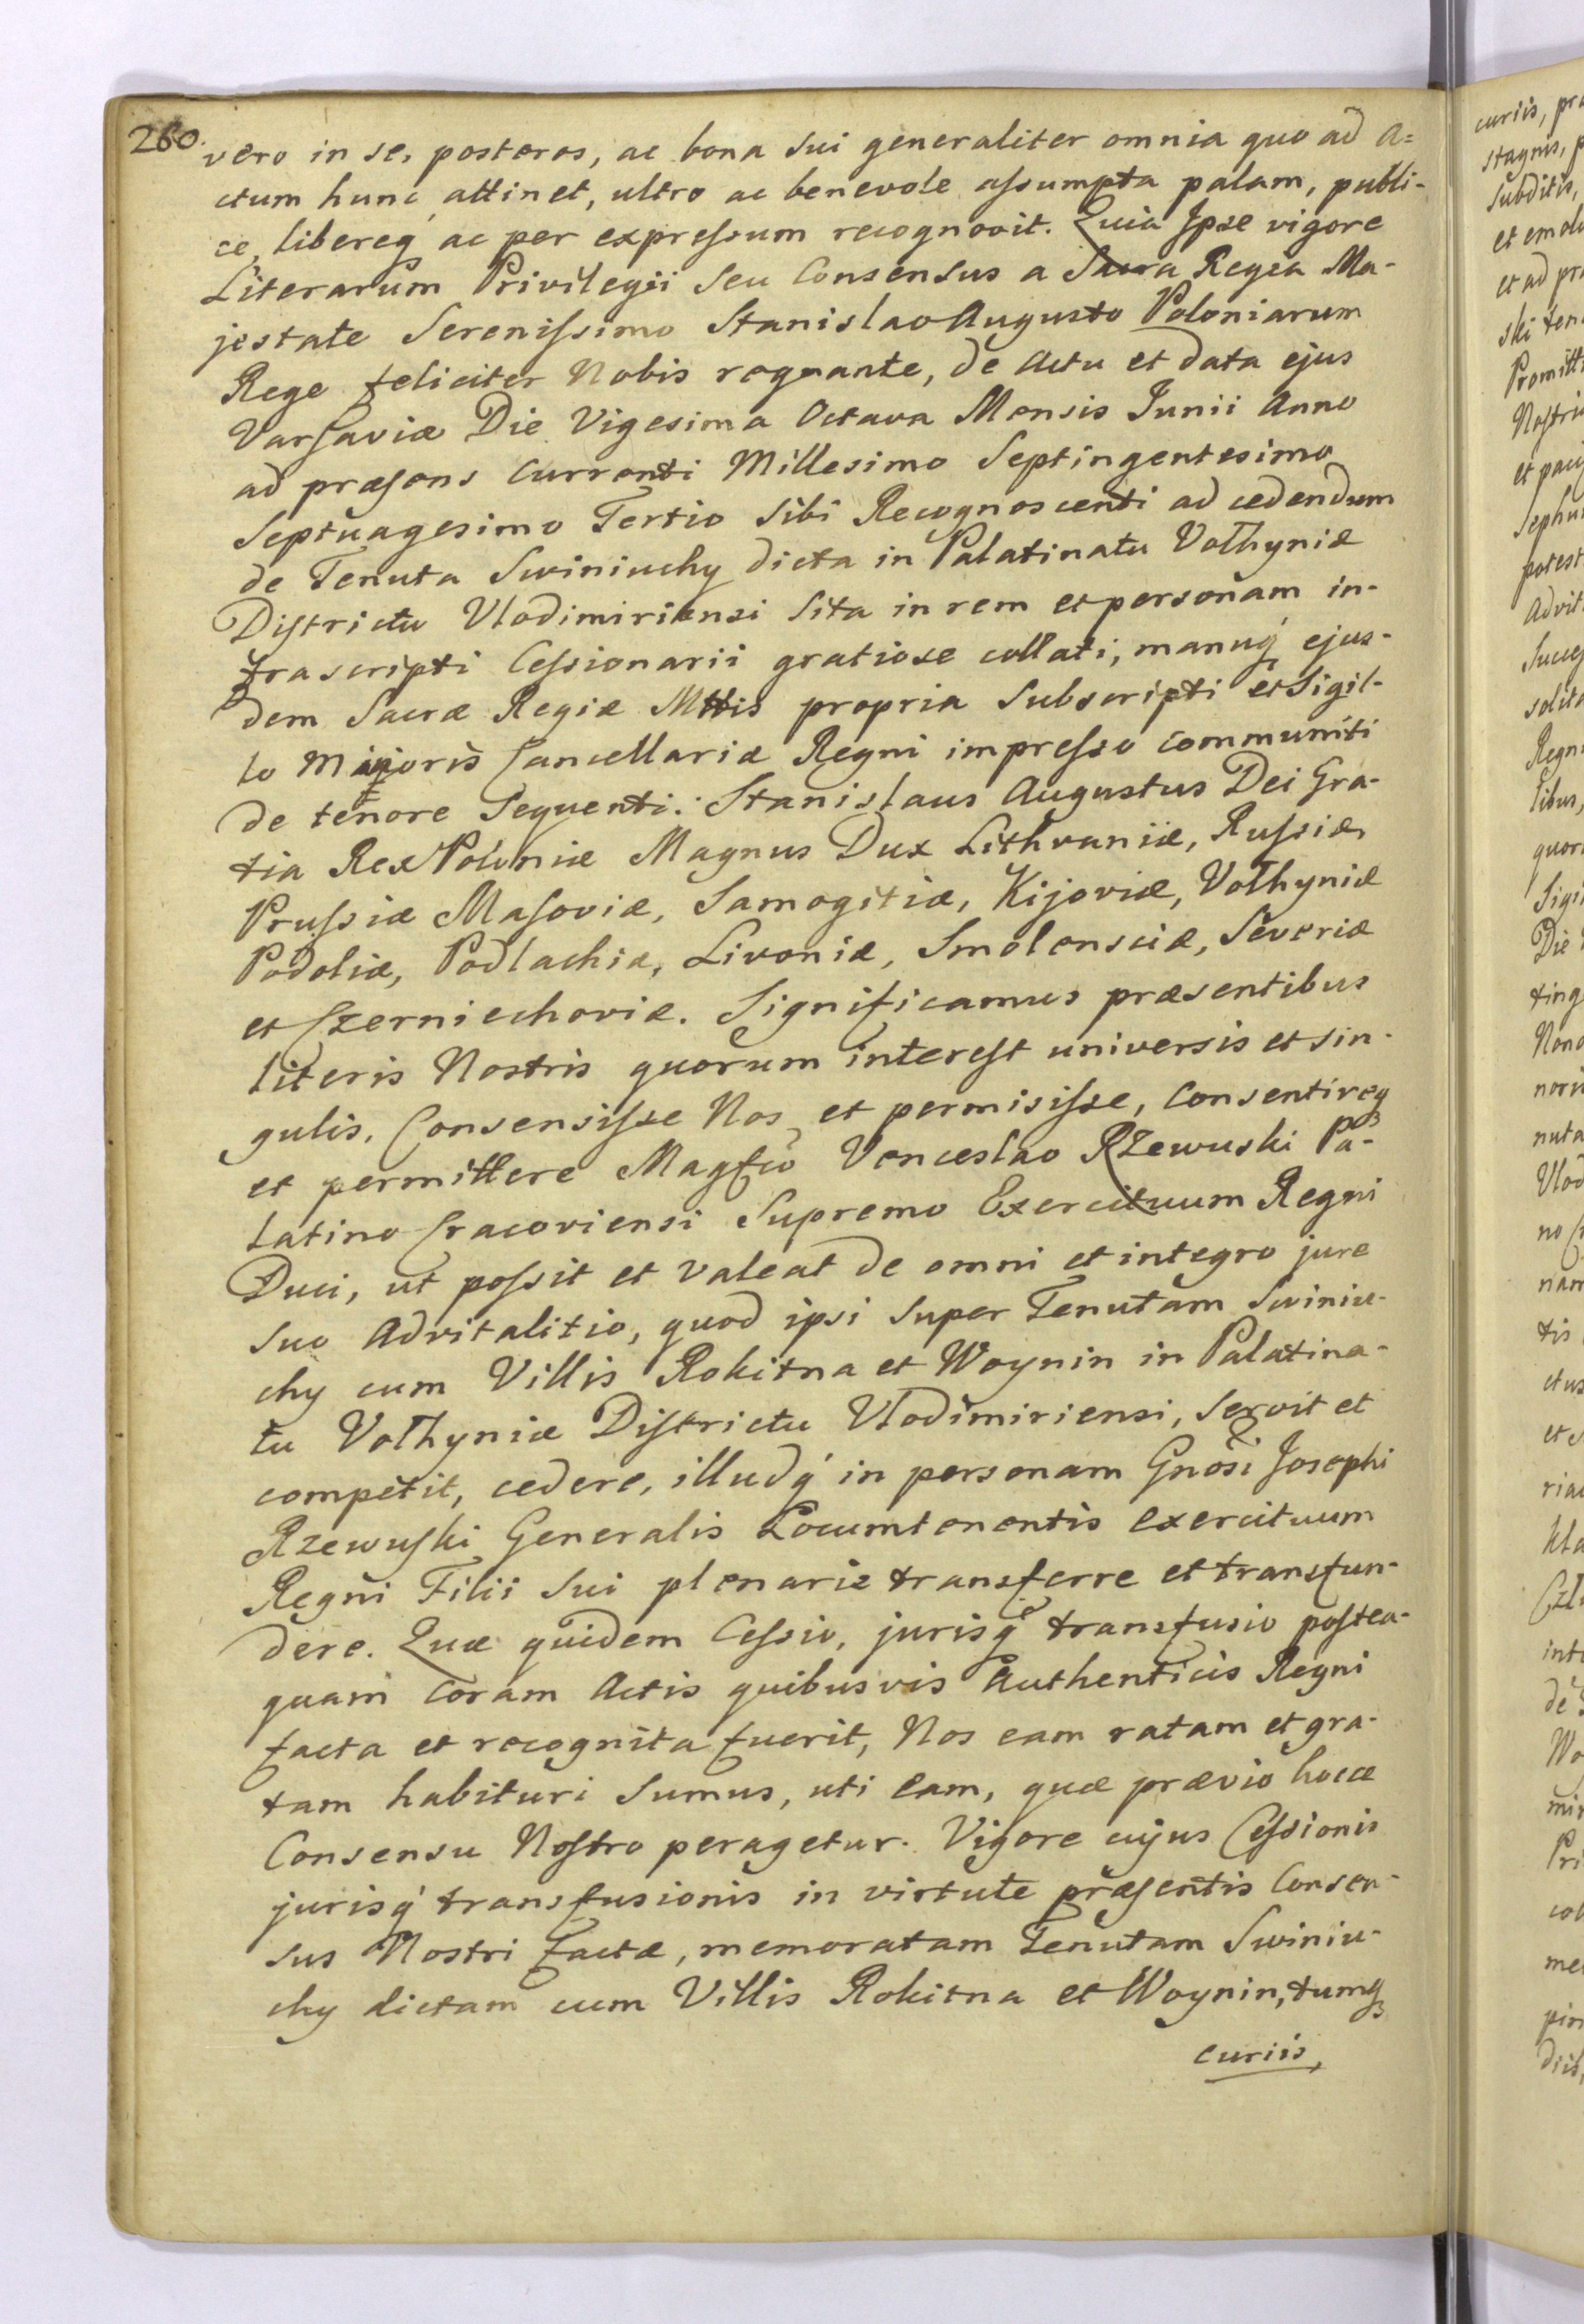 260.
vero in se, posteros, ac bona sui generaliter omnia quo ad a=
ctum hunc attinet, ultro ac benevole assumpta palam, publi-
ce, libereq́ ac per expressum recognovit. Quia Ipse vigore
Literarum Privilegii seu Consensus a Sacra Regea Ma-
jestate Serenissimo Stanislao Augusto Poloniarum
Rege feliciter Nobis regnante, de Actu et data ejus
Varsaviæ Die Vigesima Octava Mensis Junii Anno
ad præsens Currenti Millesimo Septingentesimo
Septuagesimo Tertio Sibi Recognoscenti ad cedendum
de Tenuta Swiniuchy dicta in Palatinatu Volhyniæ
Districtu Vlodimiriensi Sita in rem et personam in-
frascripti Cessionarii gratiose collati, manuq́ ejus-
dem Sacræ Regiæ Mttis propria Subscripti et Sigil-
lo Majoris Cancellariæ Regni impresso communiti
de tenore Sequenti: Stanislaus Augustus Dei Gra-
tia Rex Poloniæ Magnus Dux Lithvaniæ, Russiæ,
Prussiæ Masoviæ, Samogitiæ, Kijoviæ, Volhyniæ
Podoliæ, Podlachiæ, Livoniæ, Smolensciæ, Severiæ
et Czerniechoviæ. Significamus præsentibus
literis Nostris quorum interest universis et sin-
gulis. Consensisse Nos et permisisse, Consentireq́
et permittere Magfco Venceslao Rzewuski Pa-
latino Cracoviensi Supremo Exercituum Regni
Duci, ut possit et valeat de omni et integro jure
suo Advitalitio, quod ipsi Super Tenutam Swiniu-
chy cum Villis Rokitna et Woynin in Palatina-
tu Volhyniæ Districtu Vlodimiriensi, servit et
competit, cedere, illudq́ in personam Gnosi Josephi
Rzewuski Generalis Locumtenentis exercituum
Regni Filii Sui plenarie transferre et transfun-
dere. Quæ quidem Cessio, jurisq́ transfusio postea-
quam Coram Actis quibusvis Authenticis Regni
facta et recognita fuerit, Nos eam ratam et gra-
tam habituri Sumus, uti eam, quæ prævio hocce
Consensu Nostro peragetur. Vigore cujus Cessionis
jurisq́ transfusionis in virtute præsentis Consen-
sus Nostri factæ, memoratam Tenutam Swiniu-
chy dictam cum Villis Rokitna et Woynin, tumq́
curiis,